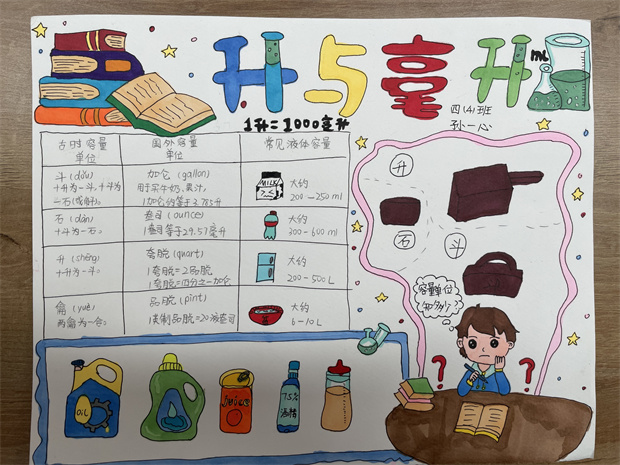 升与毫升
mL
1升=1000毫升
四(4)班
孙一心
古时容量
单位
国外容量
单位
常见液体容量
斗(dǒu)
十升为一斗,十斗为
一石(或斛)。
加仑(gallon)
用于买牛奶、果汁,
1加仑约等于3.785升
MILK
大约
200-250ml
石(dàn)
十斗为一石。
盎司(ounce)
1盎司等于29.57毫升
大约
300-600ml
升(shēng)
十升为一斗。
夸脱(quart)
1夸脱=2品脱
1夸脱=四分之一加仑
大约
200-500L
龠(yuè)
两龠为一合。
品脱(pint)
1英制品脱=20液盎司
大约
6-10L
升
石
斗
容量单位
知多少
?
?
OIL
Juice
75%
酒精